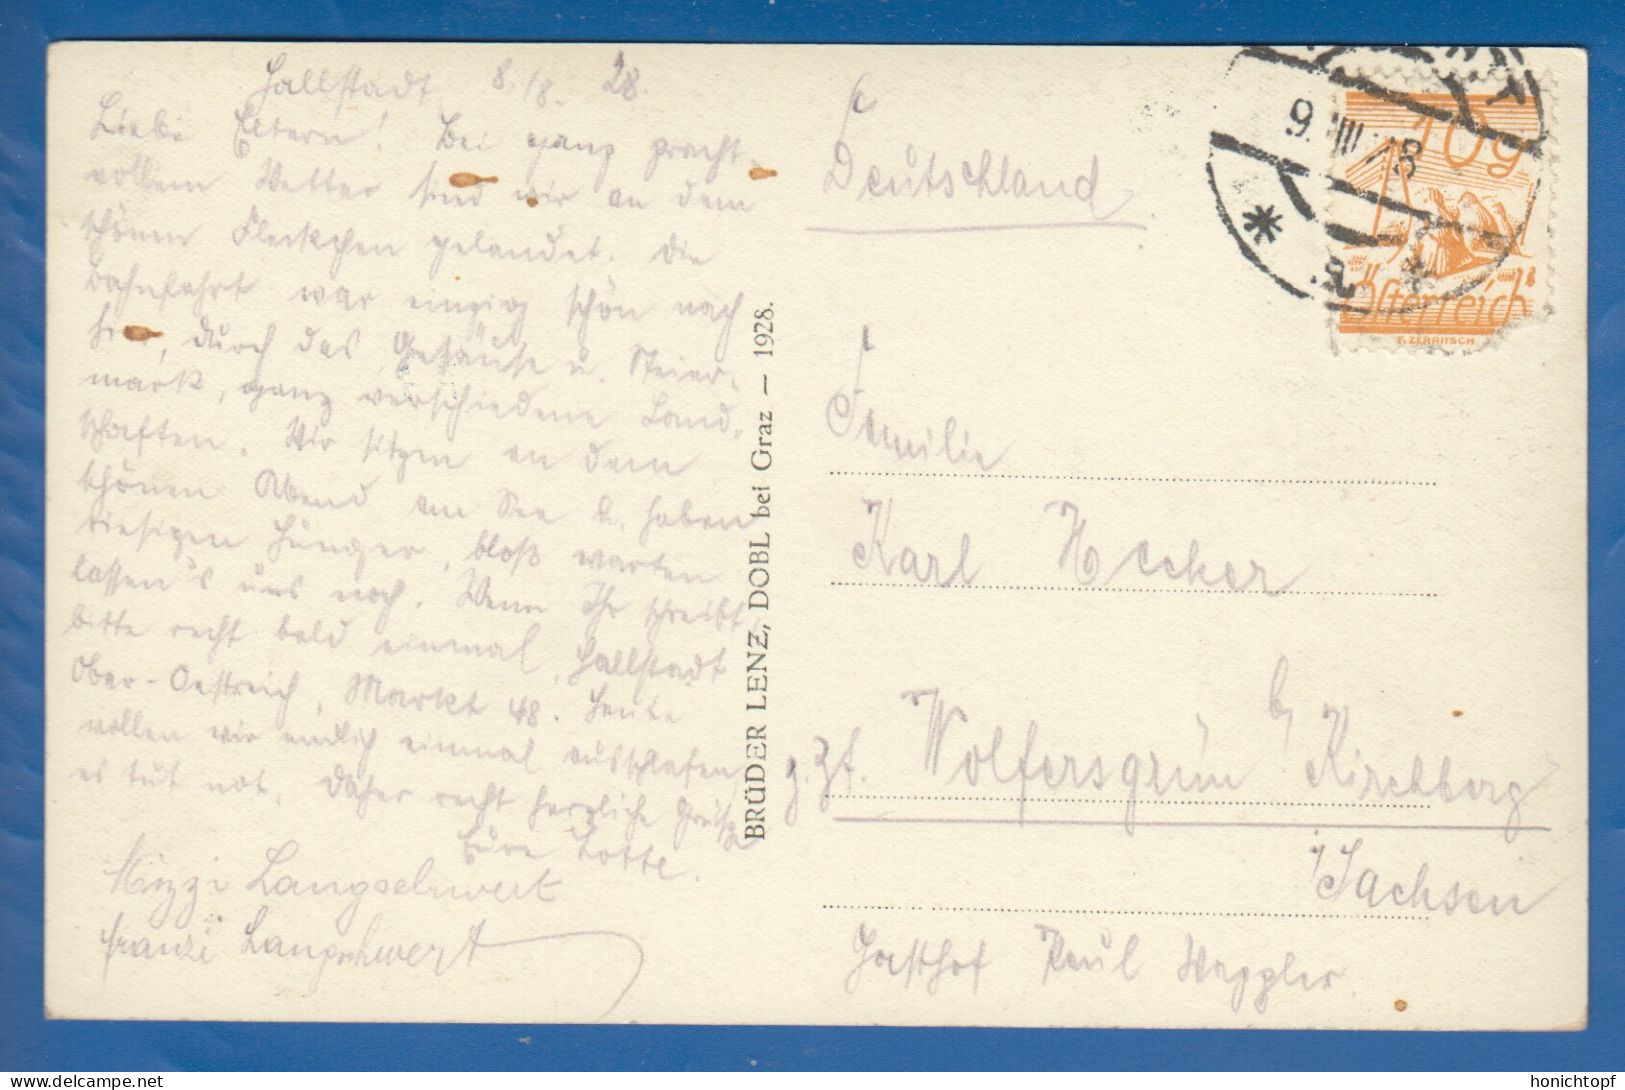 Hallstadt 8./8. 28.
Liebe Eltern! Bei ganz pracht-
vollem Wetter sind wir an dem
schönen Fleckchen gelandet. Die
Bahnfahrt war einzig schön nach
hier, durch das Gesäuse u. Steier-
mark, ganz verschiedene Land-
schaften. Wir sitzen an dem
schönen Abend am See u. haben
riesigen Hunger, bloß warten
lassen's uns noch. Wenn Ihr schreibt,
bitte recht bald einmal, Hallstadt
Ober-Oestreich, Markt 48. Heute
wollen wir endlich einmal ausschlafen,
es tut not. Daher recht herzliche Grüße
Eure Lotte.
Mizzi Langschwert
Franzi Langschwert
BRÜDER LENZ, DOBL bei Graz — 1928.
Deutschland
9. VIII 28
10g
Österreich
F. ZERRITSCH
Familie
Karl Hecker
z. Zt. Wolfersgrün b/ Kirchberg
i/Sachsen
Gasthof Paul Wappler
Delcampe.net
honichtopf